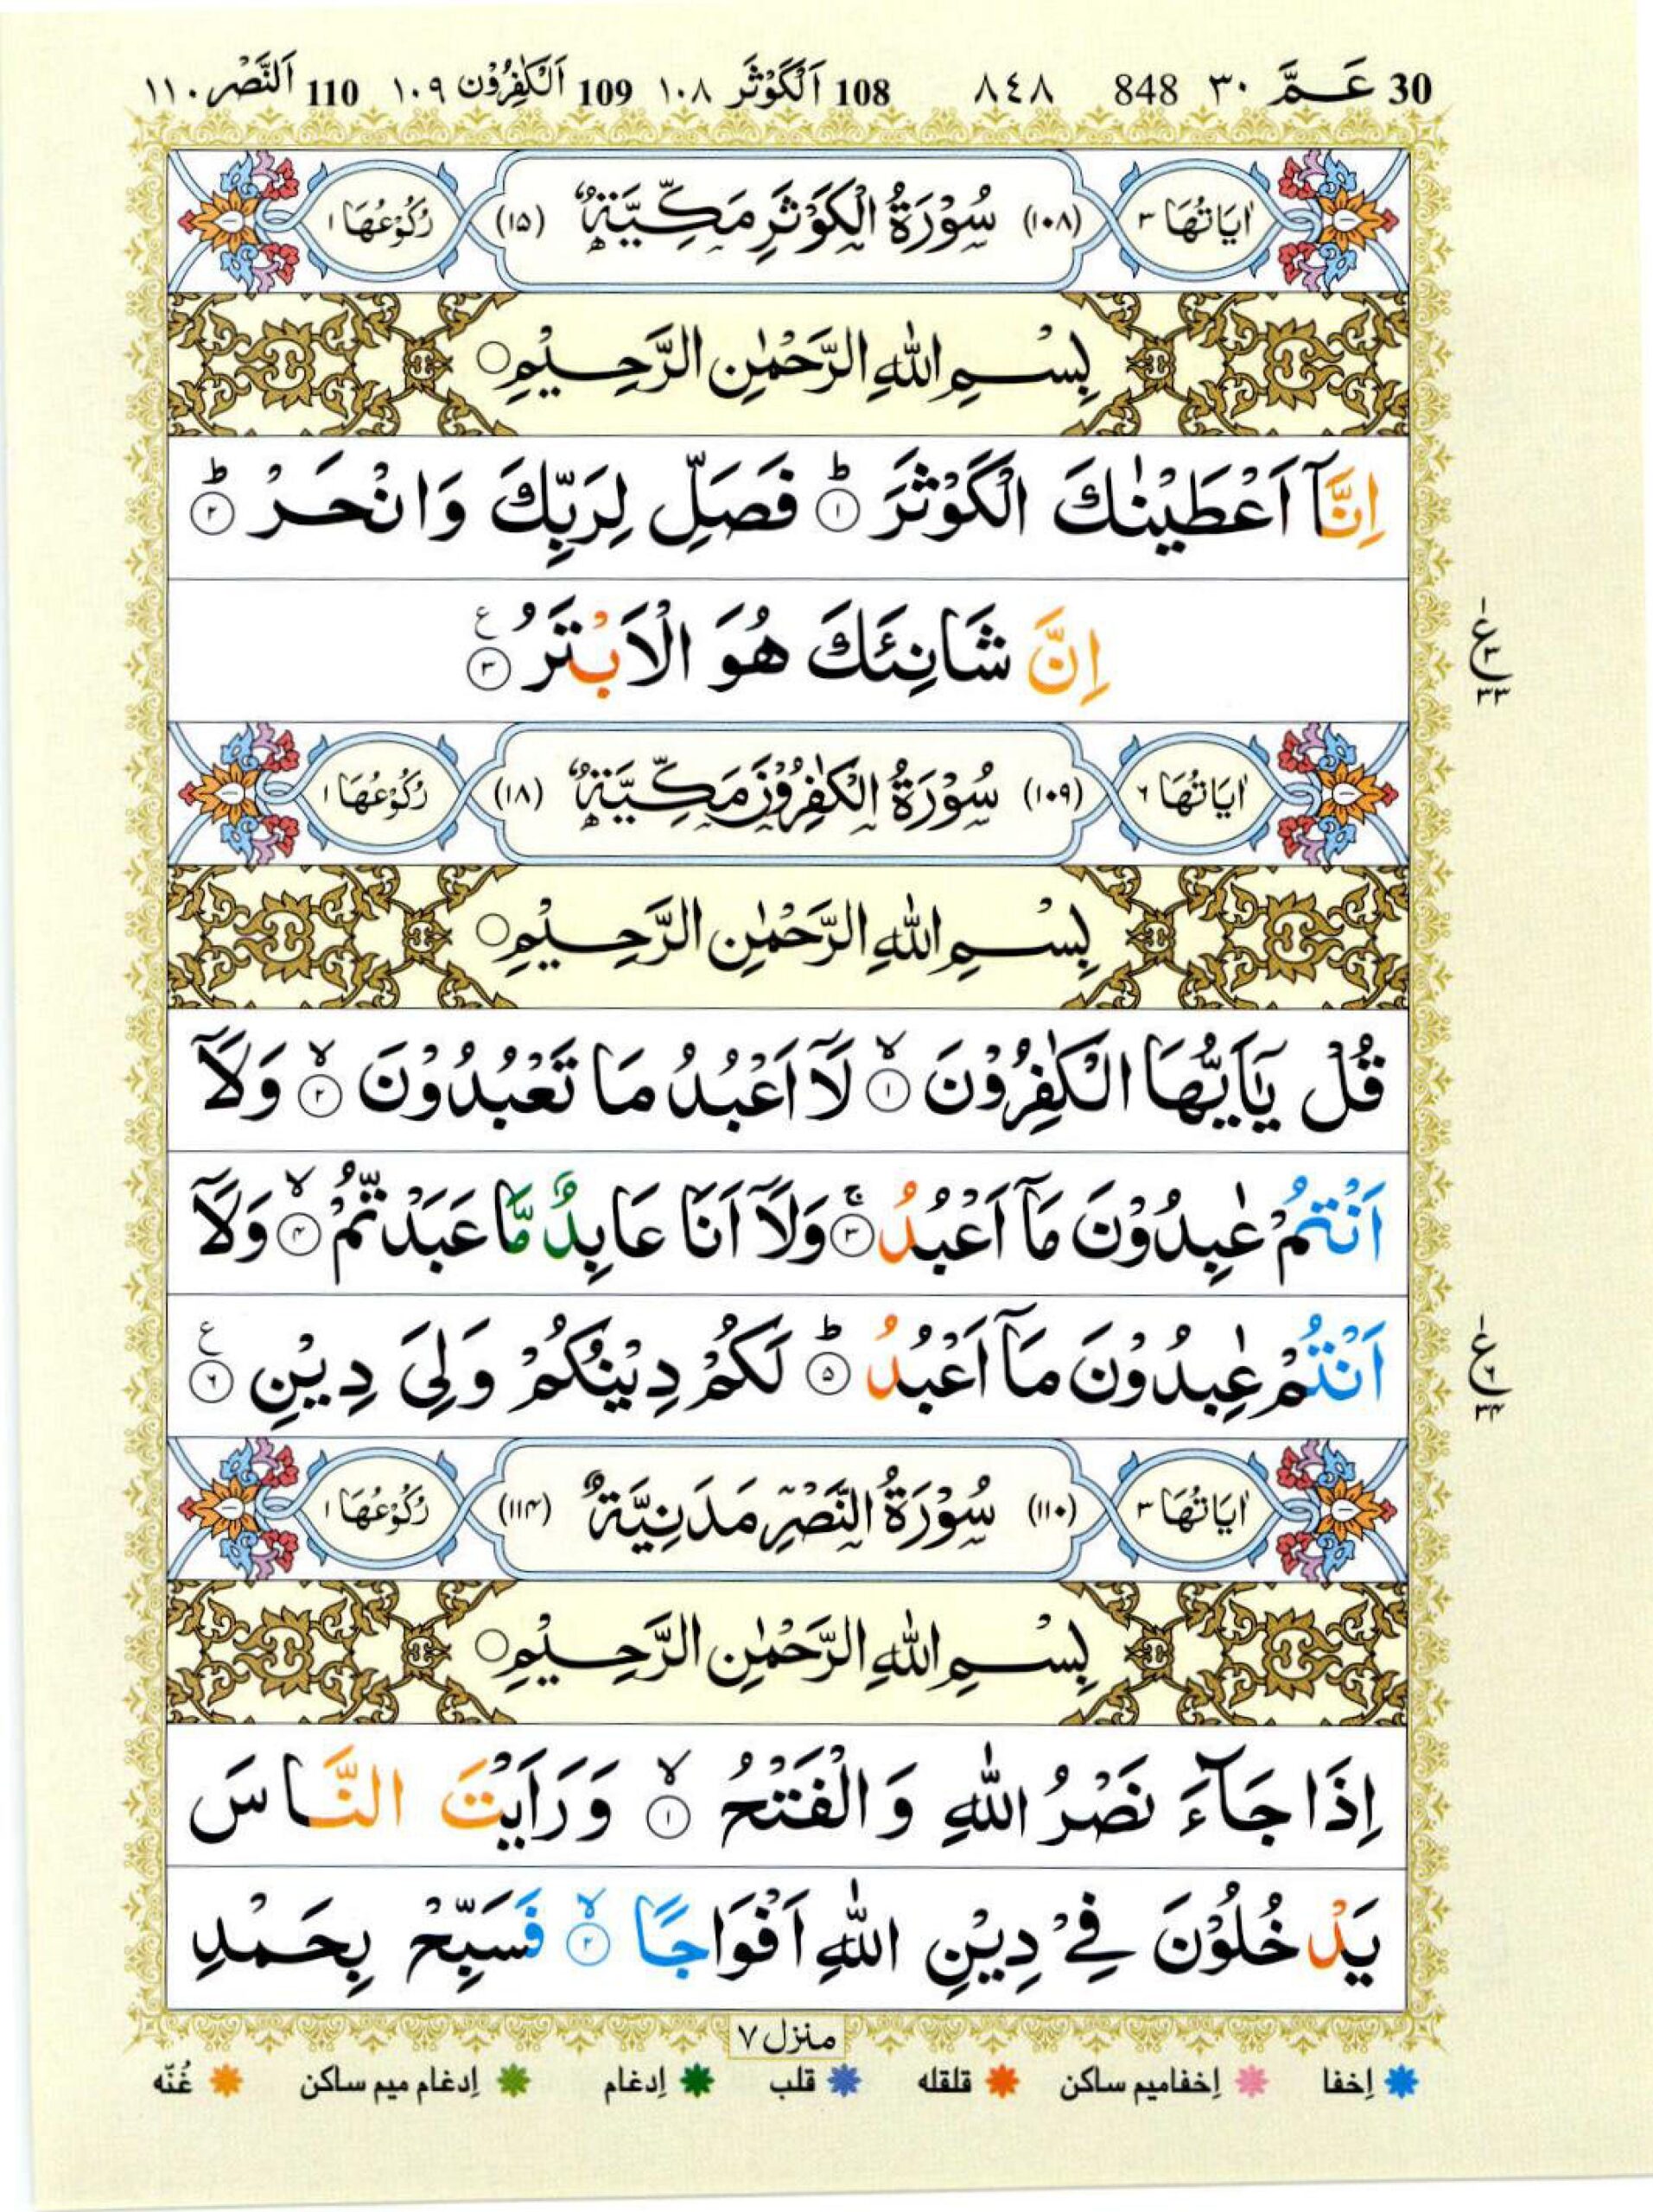 30 عَمَّ ٣٠ 848 ٨٤٨ 108 اَلْكَوْثَر ١٠٨ 109 اَلْكٰفِرُوْن ١٠٩ 110 اَلنَّصْر ١١٠
اٰيَاتُهَا ٣ (١٠٨) سُوْرَةُ الْكَوْثَرِ مَكِّيَّةٌ (١٥) رُكُوْعُهَا ١
بِسْمِ اللّٰهِ الرَّحْمٰنِ الرَّحِيْمِ○
اِنَّاۤ اَعْطَيْنٰكَ الْكَوْثَرَ ؕ۝١ فَصَلِّ لِرَبِّكَ وَانْحَرْ ؕ۝٢
اِنَّ شَانِئَكَ هُوَ الْاَبْتَرُ ۝٣ ع
ع ٣ ٣٣
اٰيَاتُهَا ٦ (١٠٩) سُوْرَةُ الْكٰفِرُوْنَ مَكِّيَّةٌ (١٨) رُكُوْعُهَا ١
بِسْمِ اللّٰهِ الرَّحْمٰنِ الرَّحِيْمِ○
قُلْ يٰۤاَيُّهَا الْكٰفِرُوْنَ ۙ۝١ لَاۤ اَعْبُدُ مَا تَعْبُدُوْنَ ۙ۝٢ وَلَاۤ
اَنْتُمْ عٰبِدُوْنَ مَاۤ اَعْبُدُ ۚ۝٣ وَلَاۤ اَنَا عَابِدٌ مَّا عَبَدْتُّمْ ۙ۝٤ وَلَاۤ
اَنْتُمْ عٰبِدُوْنَ مَاۤ اَعْبُدُ ؕ۝٥ لَكُمْ دِيْنُكُمْ وَلِيَ دِيْنِ ۝٦ ع
ع ٦ ٣٤
اٰيَاتُهَا ٣ (١١٠) سُوْرَةُ النَّصْرِ مَدَنِيَّةٌ (١١٤) رُكُوْعُهَا ١
بِسْمِ اللّٰهِ الرَّحْمٰنِ الرَّحِيْمِ○
اِذَا جَآءَ نَصْرُ اللّٰهِ وَالْفَتْحُ ۙ۝١ وَرَاَيْتَ النَّاسَ
يَدْخُلُوْنَ فِيْ دِيْنِ اللّٰهِ اَفْوَاجًا ۙ۝٢ فَسَبِّحْ بِحَمْدِ
منزل ٧
اِخفا اِخفامیم ساكن قلقله قلب اِدغام اِدغام میم ساكن غُنّه